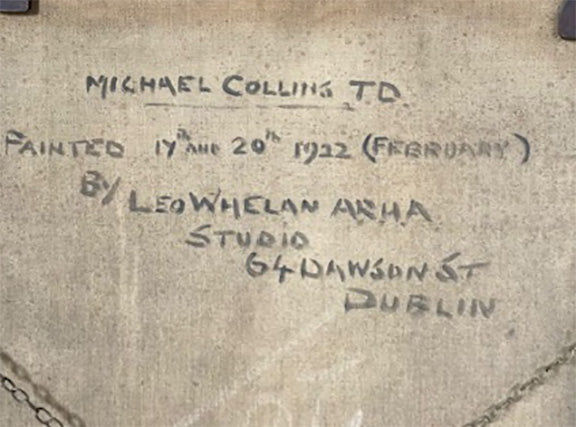 MICHAEL COLLINS T.D.
PAINTED 17th AND 20th 1922 (FEBRUARY)
BY
LEO WHELAN ARHA
STUDIO
64 DAWSON ST
DUBLIN